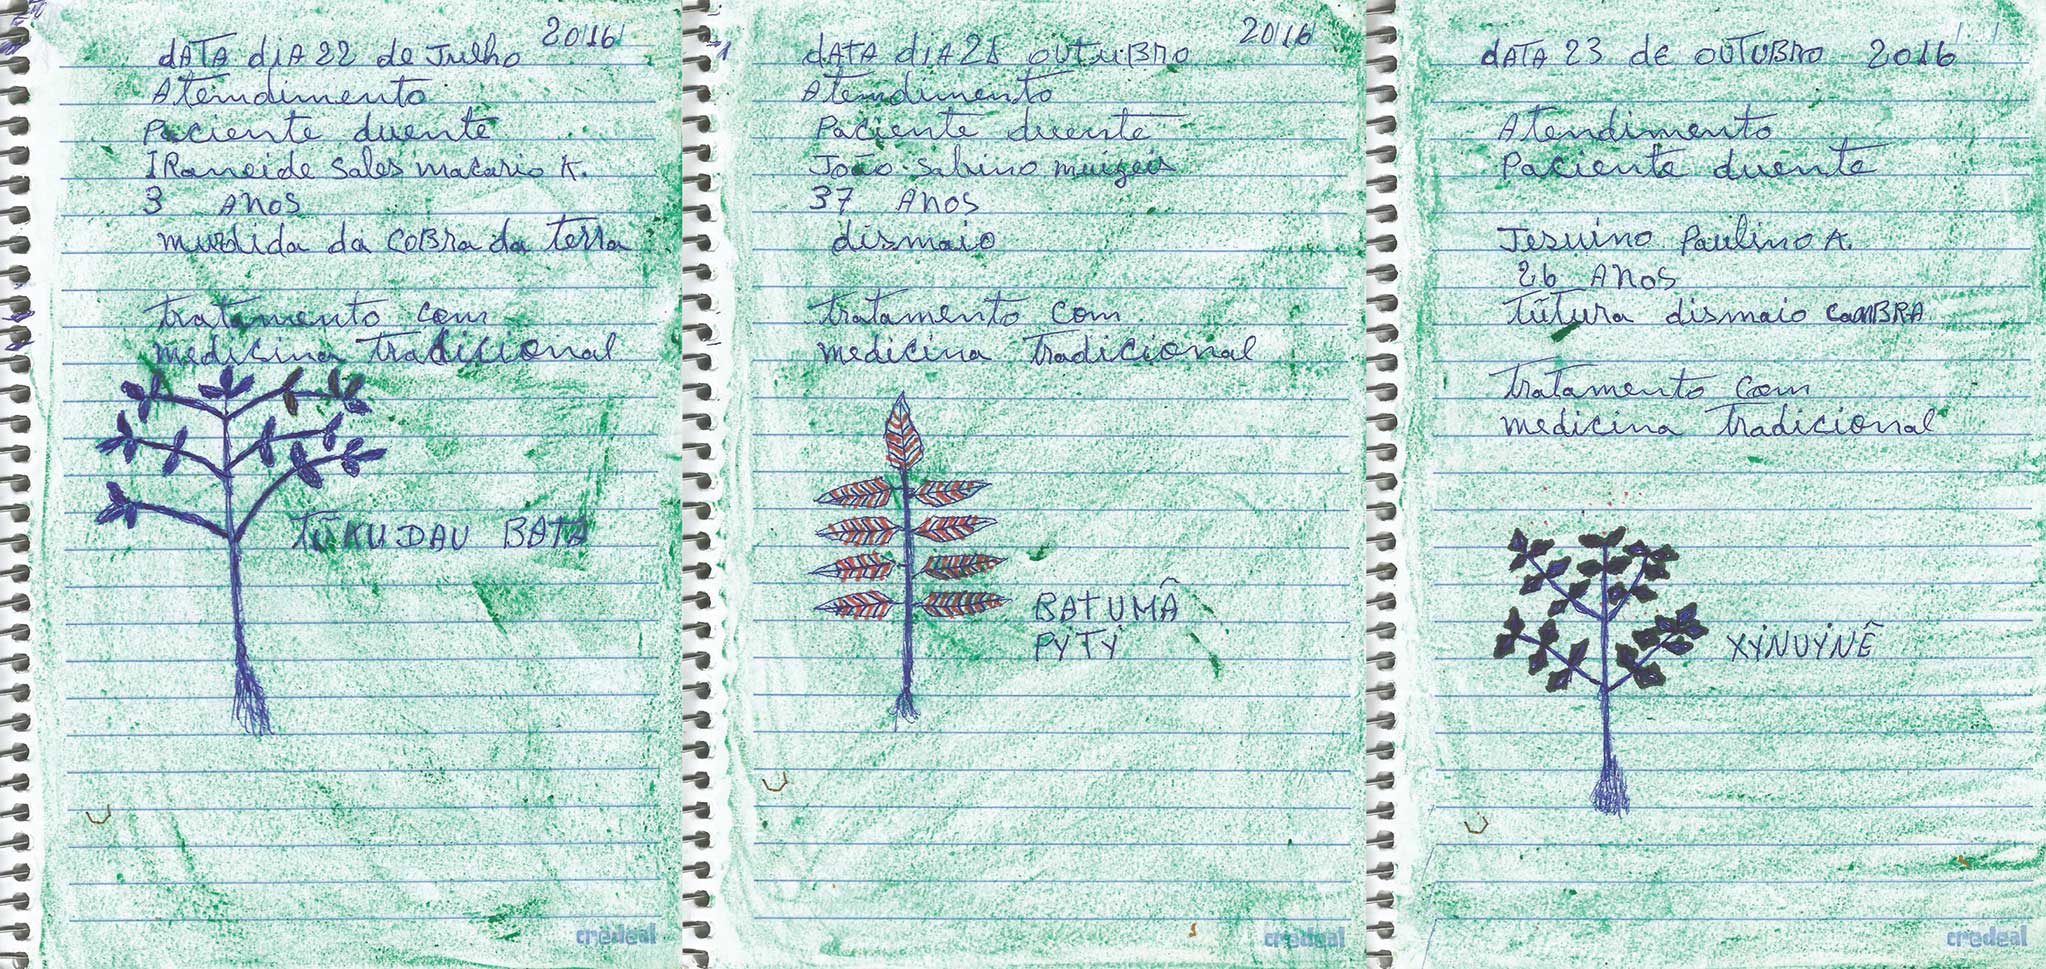 DATA DIA 22 de Julho 2016
Atemdimento
Paciente duente
IRaneide Sales macario K.
3 ANOS
murdida da COBRA da terra
tratamento com
medicina tradicional
TŨKUDAU BATA
credeal
DATA DIA OUTUBRO 2016
Atemdimento
Paciente duente
João Sabino
37 ANOS
dismaio
tratamento com
medicina tradicional
BATUMÂ
PYTY
credeal
DATA 23 de OUTUBRO 2016
Atendimento
Paciente duente
Jesuino Paulino A.
26 ANOS
tũtura dismaio
tratamento com
medicina tradicional
XYNUYNÊ
credeal